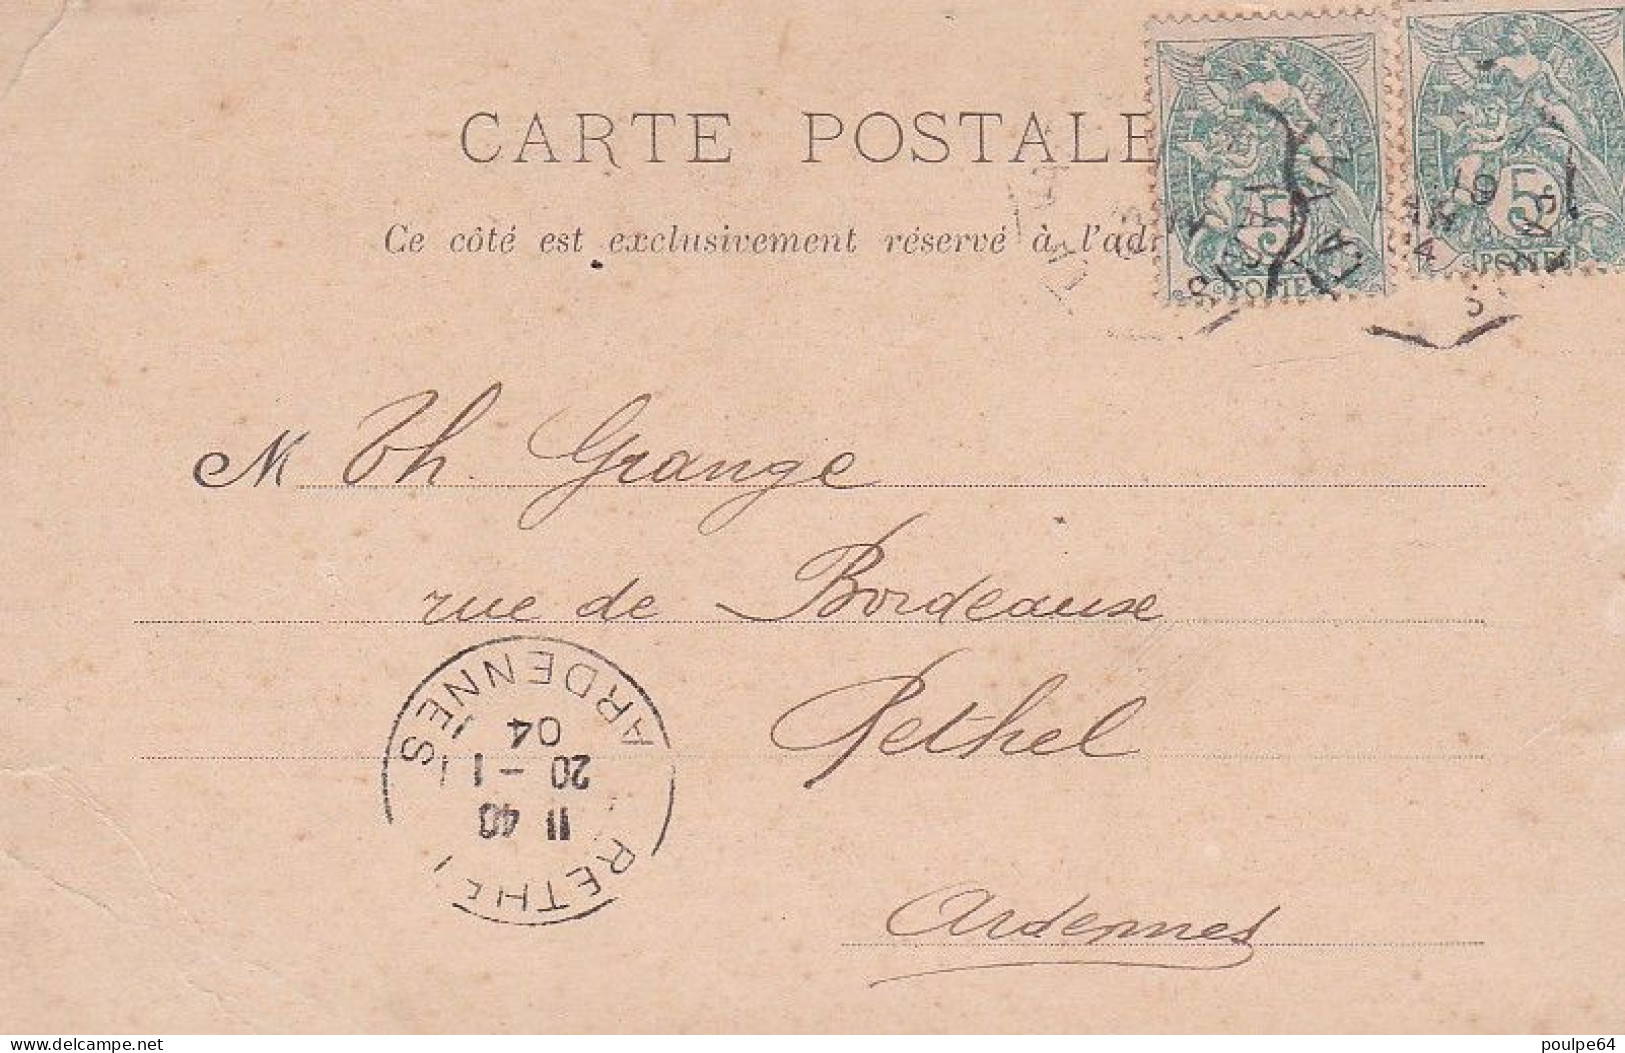 CARTE POSTALE
Ce côté est exclusivement réservé à l'adr
5 POSTES
5 POSTES
M Th. Grange
rue de Bordeause
Rethel
Ardennes
ARDENNES
04
20 - 1
11 40
RETHE
delcampe.net
poulpe64